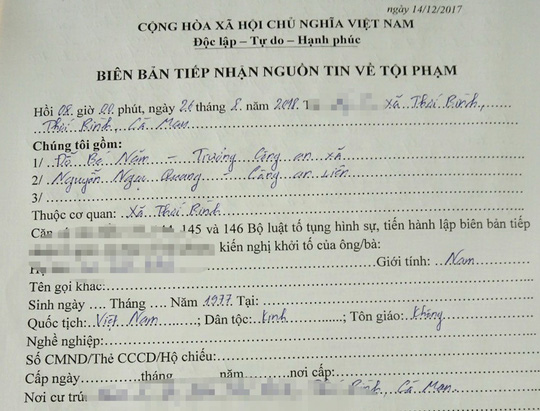 ngày 14/12/2017
CỘNG HÒA XÃ HỘI CHỦ NGHĨA VIỆT NAM
Độc lập – Tự do – Hạnh phúc
BIÊN BẢN TIẾP NHẬN NGUỒN TIN VỀ TỘI PHẠM
Hồi 08 giờ 00 phút, ngày 26 tháng 8 năm 2018. T xã Thới Bình,
Thới Bình, Cà Mau
Chúng tôi gồm:
1/ Đỗ Bé Năm – Trưởng Công an xã
2/ Nguyễn Ngọc Quang – Công an viên
3/
Thuộc cơ quan: Xã Thới Bình
Căn 145 và 146 Bộ luật tố tụng hình sự, tiến hành lập biên bản tiếp
kiến nghị khởi tố của ông/bà:
Họ Giới tính: Nam
Tên gọi khác:
Sinh ngày .... Tháng .... Năm 1977 Tại:
Quốc tịch: Việt Nam; Dân tộc: Kinh; Tôn giáo: Không
Nghề nghiệp:
Số CMND/Thẻ CCCD/Hộ chiếu:
Cấp ngày tháng năm nơi cấp:
Nơi cư trú Thới Bình, Cà Mau